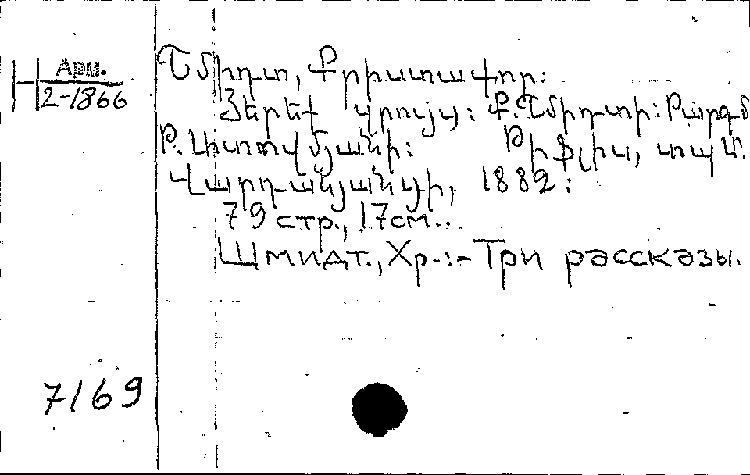 Арм.
2-1866
Շմիդտ, Քրիստափոր:
զրույց: Ք.Շմիդտի: Թարգմ
Թիֆլիս, տպ. Մ.
Վարդանյանցի, 1882:
79 стр., 17см.
Шмидт., Хр.-:-Три рассказы.
7169